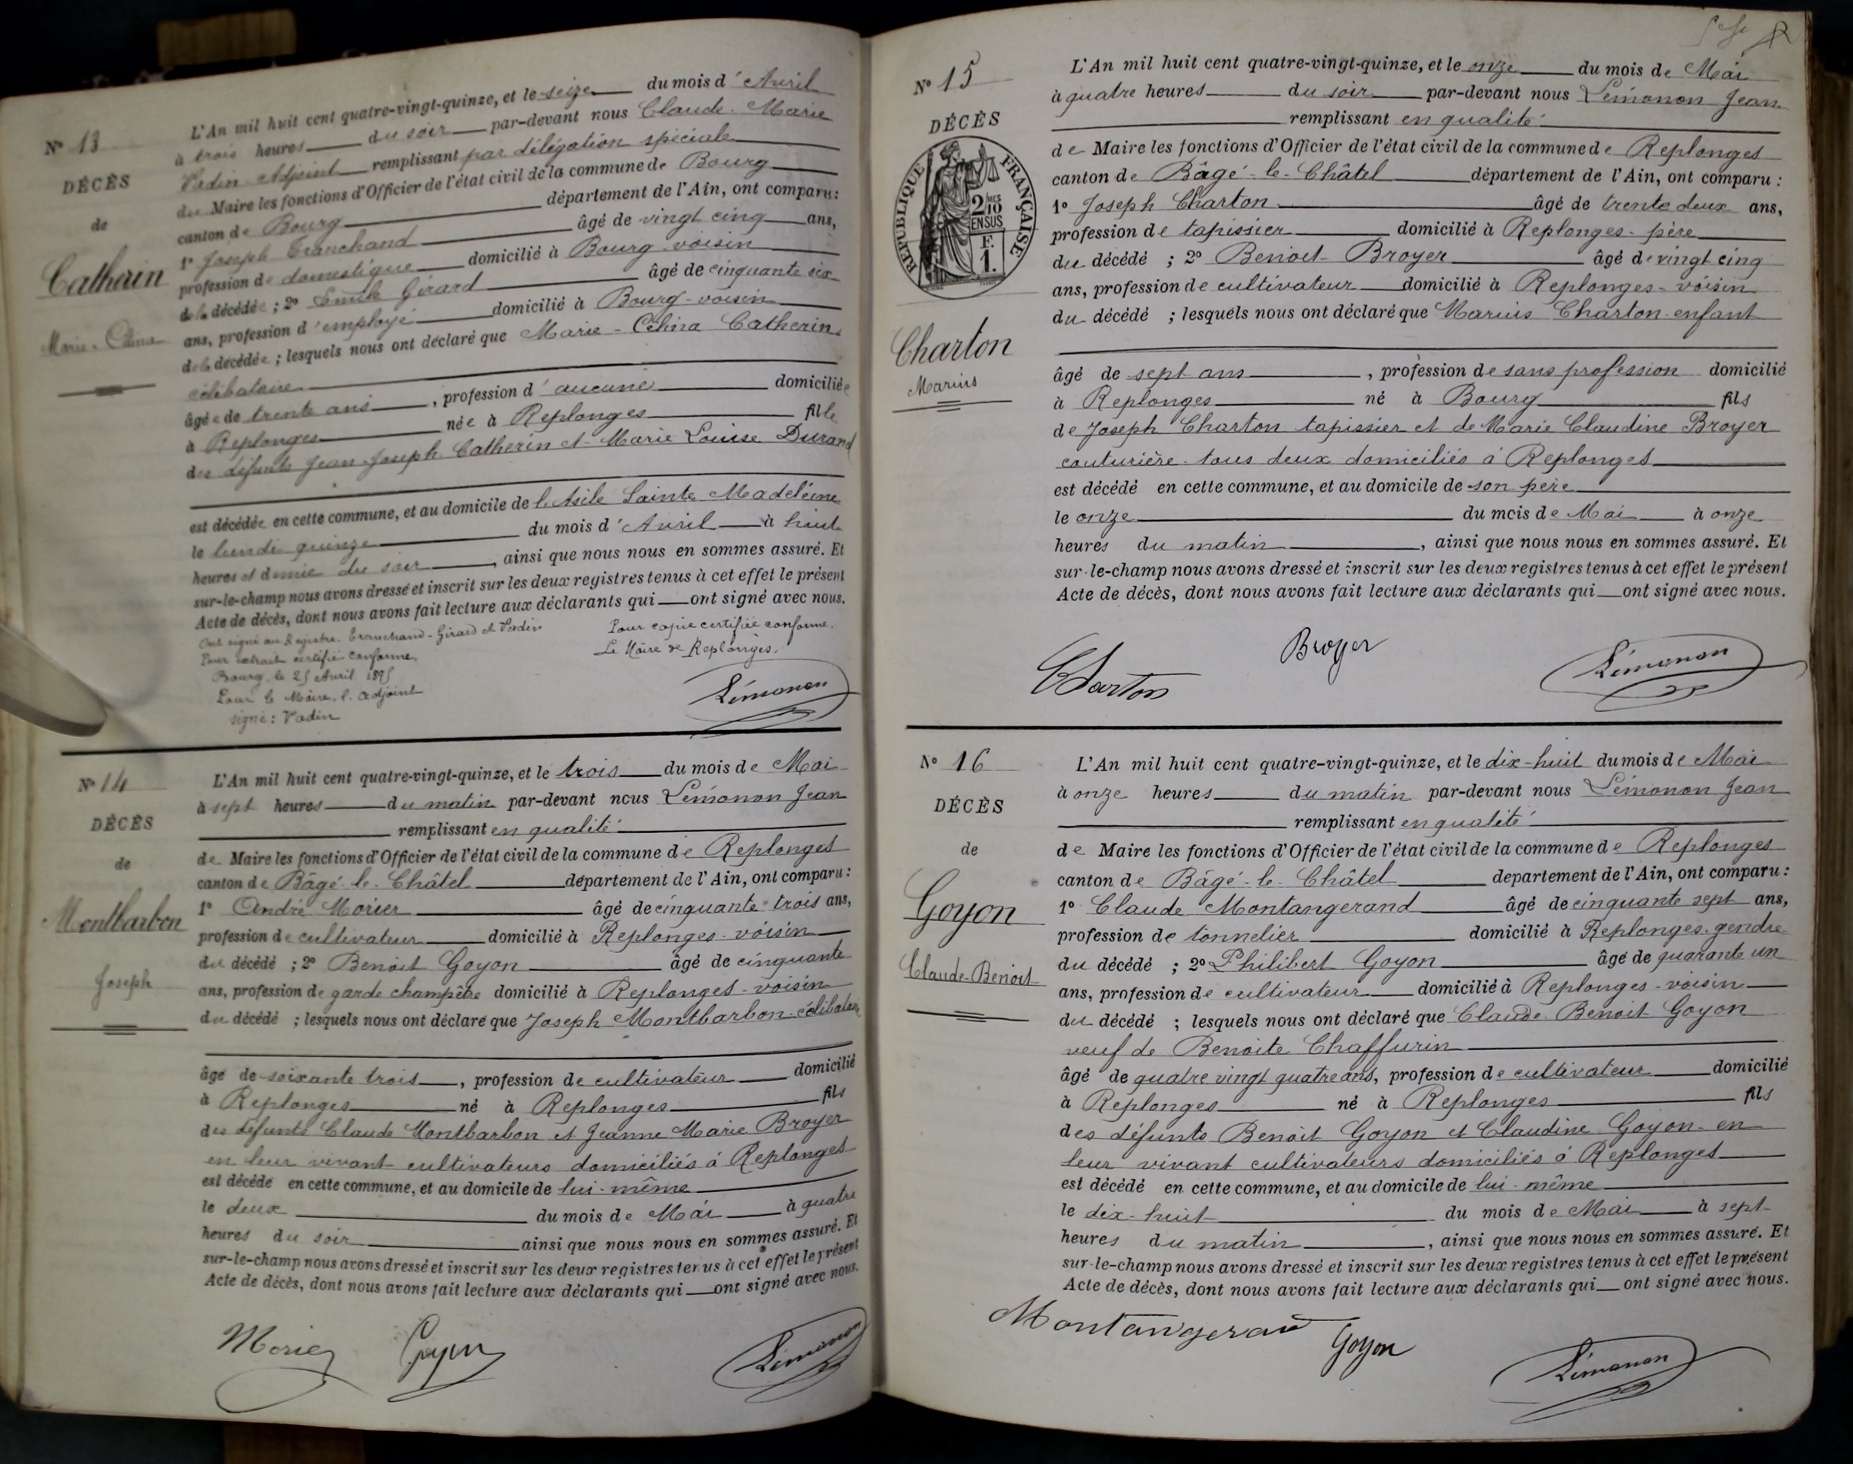 N° 13
DÉCÈS
de
Catherin
Marie-Célina
L'An mil huit cent quatre-vingt-quinze, et le seize du mois d'Avril
à trois heures du soir par-devant nous Claude-Marie
Vadin Adjoint remplissant par délégation spéciale
du Maire les fonctions d'Officier de l'état civil de la commune de Bourg
canton de Bourg département de l'Ain, ont comparu:
1° Joseph Tranchand âgé de vingt cinq ans,
profession de domestique domicilié à Bourg voisin
de la décédée; 2° Girard âgé de cinquante six
ans, profession d'employé domicilié à Bourg-voisin
de la décédée; lesquels nous ont déclaré que Marie-Célina Catherin
célibataire
âgée de trente ans, profession d'aucune domiciliée
à Replonges née à Replonges fille
des défunts Jean-Joseph Catherin et Marie Louise Durand
est décédée en cette commune, et au domicile de l'Asile Sainte Madeleine
le lundi quinze du mois d'Avril à huit
heures et demie du soir, ainsi que nous nous en sommes assuré. Et
sur-le-champ nous avons dressé et inscrit sur les deux registres tenus à cet effet le présent
Acte de décès, dont nous avons fait lecture aux déclarants qui ont signé avec nous.
Ont signé au Registre. Tranchand-Girard et Vadin
Pour extrait certifié conforme,
Bourg, le 25 Avril 1895
Pour le Maire, l'adjoint
signé: Vadin
Pour copie certifiée conforme.
Le Maire de Replonges.
Lémonon
N° 14
DÉCÈS
de
Montbarbon
Joseph
L'An mil huit cent quatre-vingt-quinze, et le trois du mois de Mai
à sept heures du matin par-devant nous Lémonon Jean
remplissant en qualité
de Maire les fonctions d'Officier de l'état civil de la commune de Replonges
canton de Bâgé-le-Châtel département de l'Ain, ont comparu:
1° André Morier âgé de cinquante-trois ans,
profession de cultivateur domicilié à Replonges-voisin
du décédé; 2° Benoit Goyon âgé de cinquante
ans, profession de garde champêtre domicilié à Replonges-voisin
du décédé; lesquels nous ont déclaré que Joseph Montbarbon-célibataire
âgé de soixante trois, profession de cultivateur domicilié
à Replonges né à Replonges fils
des défunts Claude Montbarbon et Jeanne Marie Broyer
en leur vivant cultivateurs domiciliés à Replonges
est décédé en cette commune, et au domicile de lui-même
le deux du mois de Mai à quatre
heures du soir ainsi que nous nous en sommes assuré. Et
sur-le-champ nous avons dressé et inscrit sur les deux registres tenus à cet effet le présent
Acte de décès, dont nous avons fait lecture aux déclarants qui ont signé avec nous.
Morier Goyon Lémonon
N° 15
DÉCÈS
RÉPUBLIQUE FRANÇAISE
2/10 EN SUS
F. 1.
Charton
Marius
L'An mil huit cent quatre-vingt-quinze, et le onze du mois de Mai
à quatre heures du soir par-devant nous Lémonon Jean
remplissant en qualité
de Maire les fonctions d'Officier de l'état civil de la commune de Replonges
canton de Bâgé-le-Châtel département de l'Ain, ont comparu:
1° Joseph Charton âgé de trente deux ans,
profession de tapissier domicilié à Replonges-père
du décédé; 2° Benoit Broyer âgé de vingt cinq
ans, profession de cultivateur domicilié à Replonges-voisin
du décédé; lesquels nous ont déclaré que Marius Charton-enfant
âgé de sept ans, profession de sans profession domicilié
à Replonges né à Bourg fils
de Joseph Charton tapissier et de Marie Claudine Broyer
couturière tous deux domiciliés à Replonges
est décédé en cette commune, et au domicile de son père
le onze du mois de Mai à onze
heures du matin, ainsi que nous nous en sommes assuré. Et
sur-le-champ nous avons dressé et inscrit sur les deux registres tenus à cet effet le présent
Acte de décès, dont nous avons fait lecture aux déclarants qui ont signé avec nous.
Charton Broyer Lémonon
N° 16
DÉCÈS
de
Goyon
Claude-Benoit
L'An mil huit cent quatre-vingt-quinze, et le dix-huit du mois de Mai
à onze heures du matin par-devant nous Lémonon Jean
remplissant en qualité
de Maire les fonctions d'Officier de l'état civil de la commune de Replonges
canton de Bâgé-le-Châtel departement de l'Ain, ont comparu:
1° Claude Montangerand âgé de cinquante sept ans,
profession de tonnelier domicilié à Replonges-gendre
du décédé; 2° Philibert Goyon âgé de quarante un
ans, profession de cultivateur domicilié à Replonges-voisin
du décédé; lesquels nous ont déclaré que Claude Benoit Goyon
veuf de Benoite Chaffurin
âgé de quatre vingt quatre ans, profession de cultivateur domicilié
à Replonges né à Replonges fils
des défunts Benoit Goyon et Claudine Goyon-en
leur vivant cultivateurs domiciliés à Replonges
est décédé en cette commune, et au domicile de lui-même
le dix-huit du mois de Mai à sept
heures du matin, ainsi que nous nous en sommes assuré. Et
sur-le-champ nous avons dressé et inscrit sur les deux registres tenus à cet effet le présent
Acte de décès, dont nous avons fait lecture aux déclarants qui ont signé avec nous.
Montangerand Goyon Lémonon